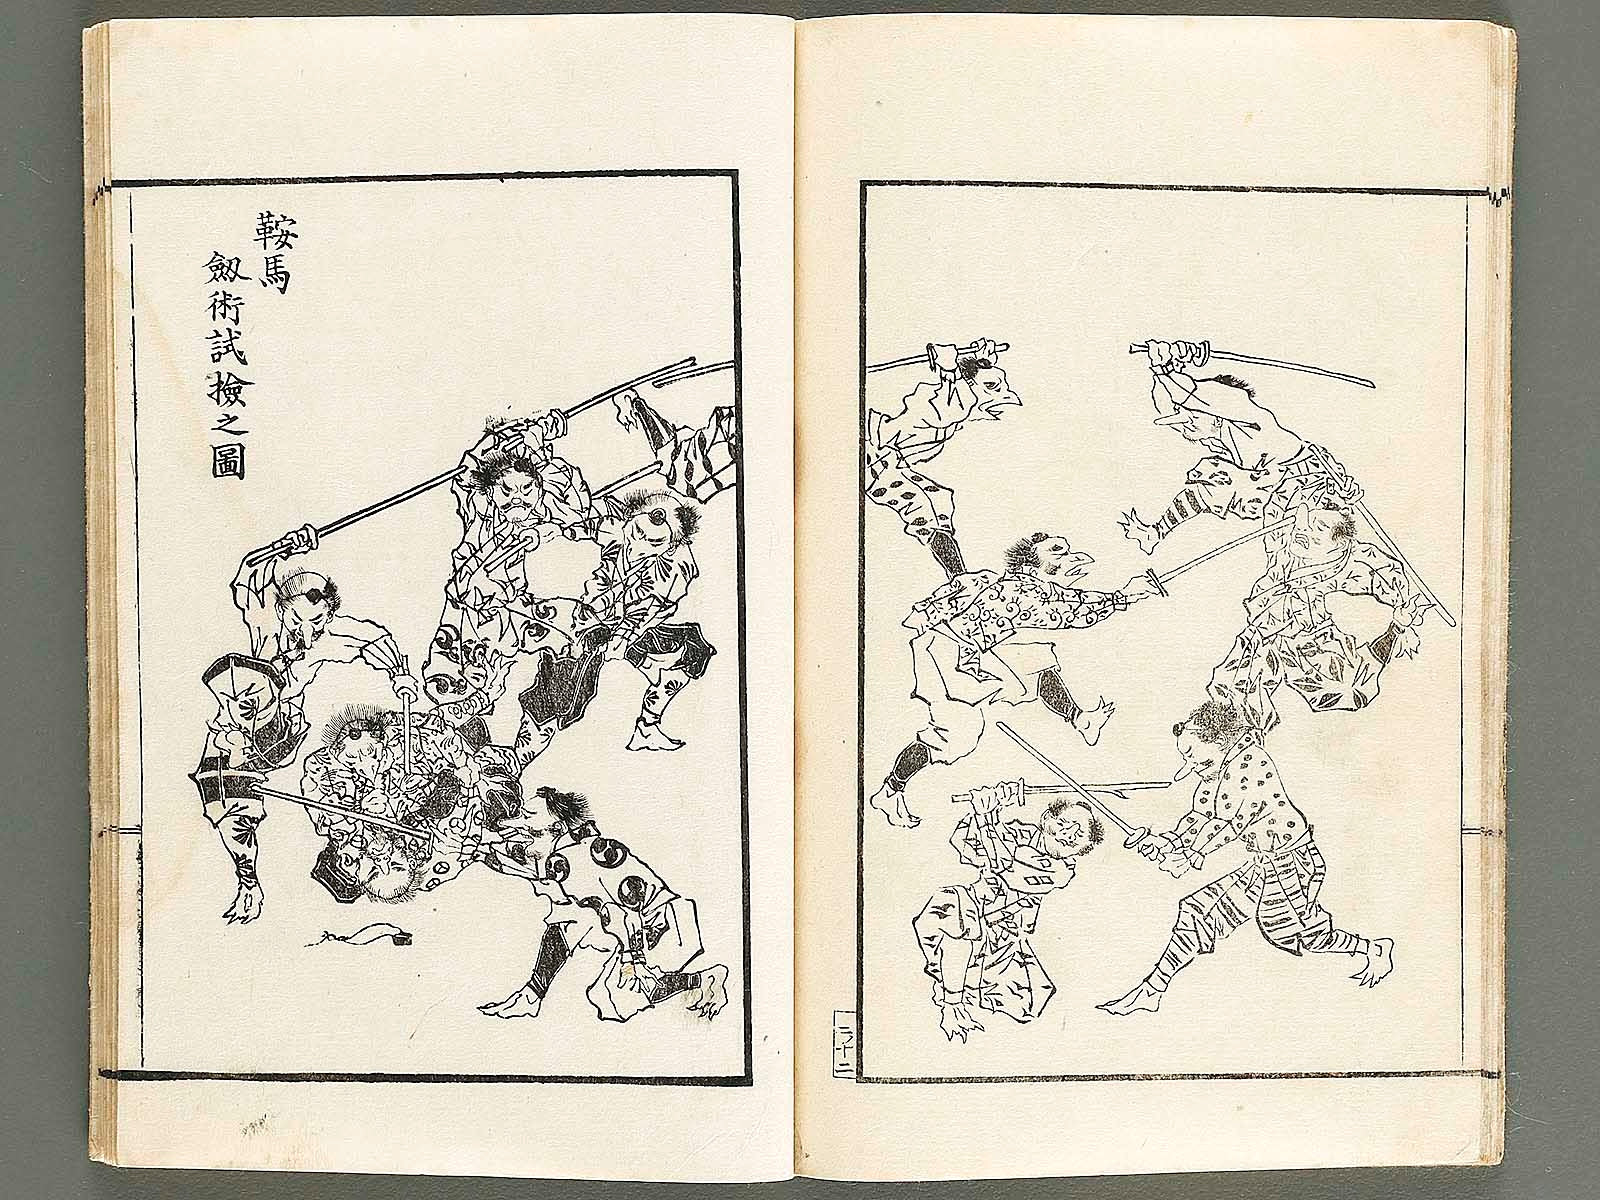 鞍馬
劔術試撿之圖
二ノ十二